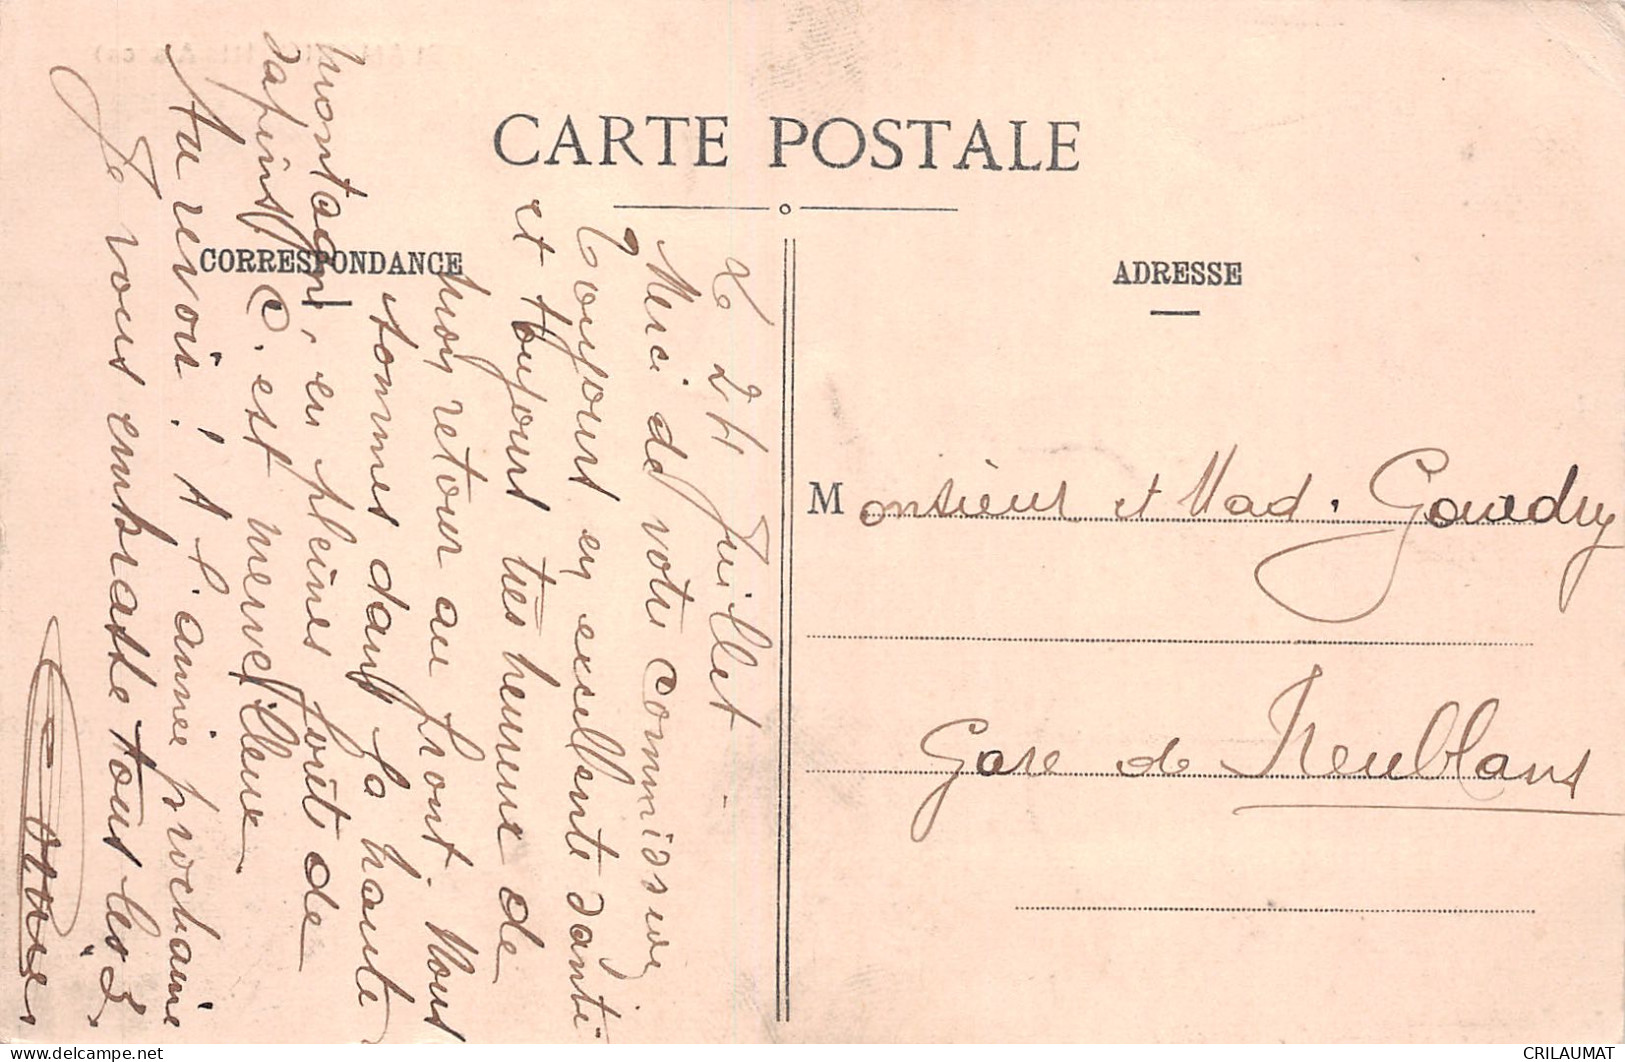 CARTE POSTALE
CORRESPONDANCE
ADRESSE
Le 24 Juillet -
Merci de votre commission
Toujours en exellente santé
et toujours très heureux de
mon retour au front. Nous
sommes dans la haute
montagne, en pleines forêts de
sapins. C'est merveilleux
Au revoir ! A l'année prochaine
Je vous embrasse tous les 3.
Monsieur et Mad. Gouedry
Gare de Neublans
delcampe.net
CRILAUMAT